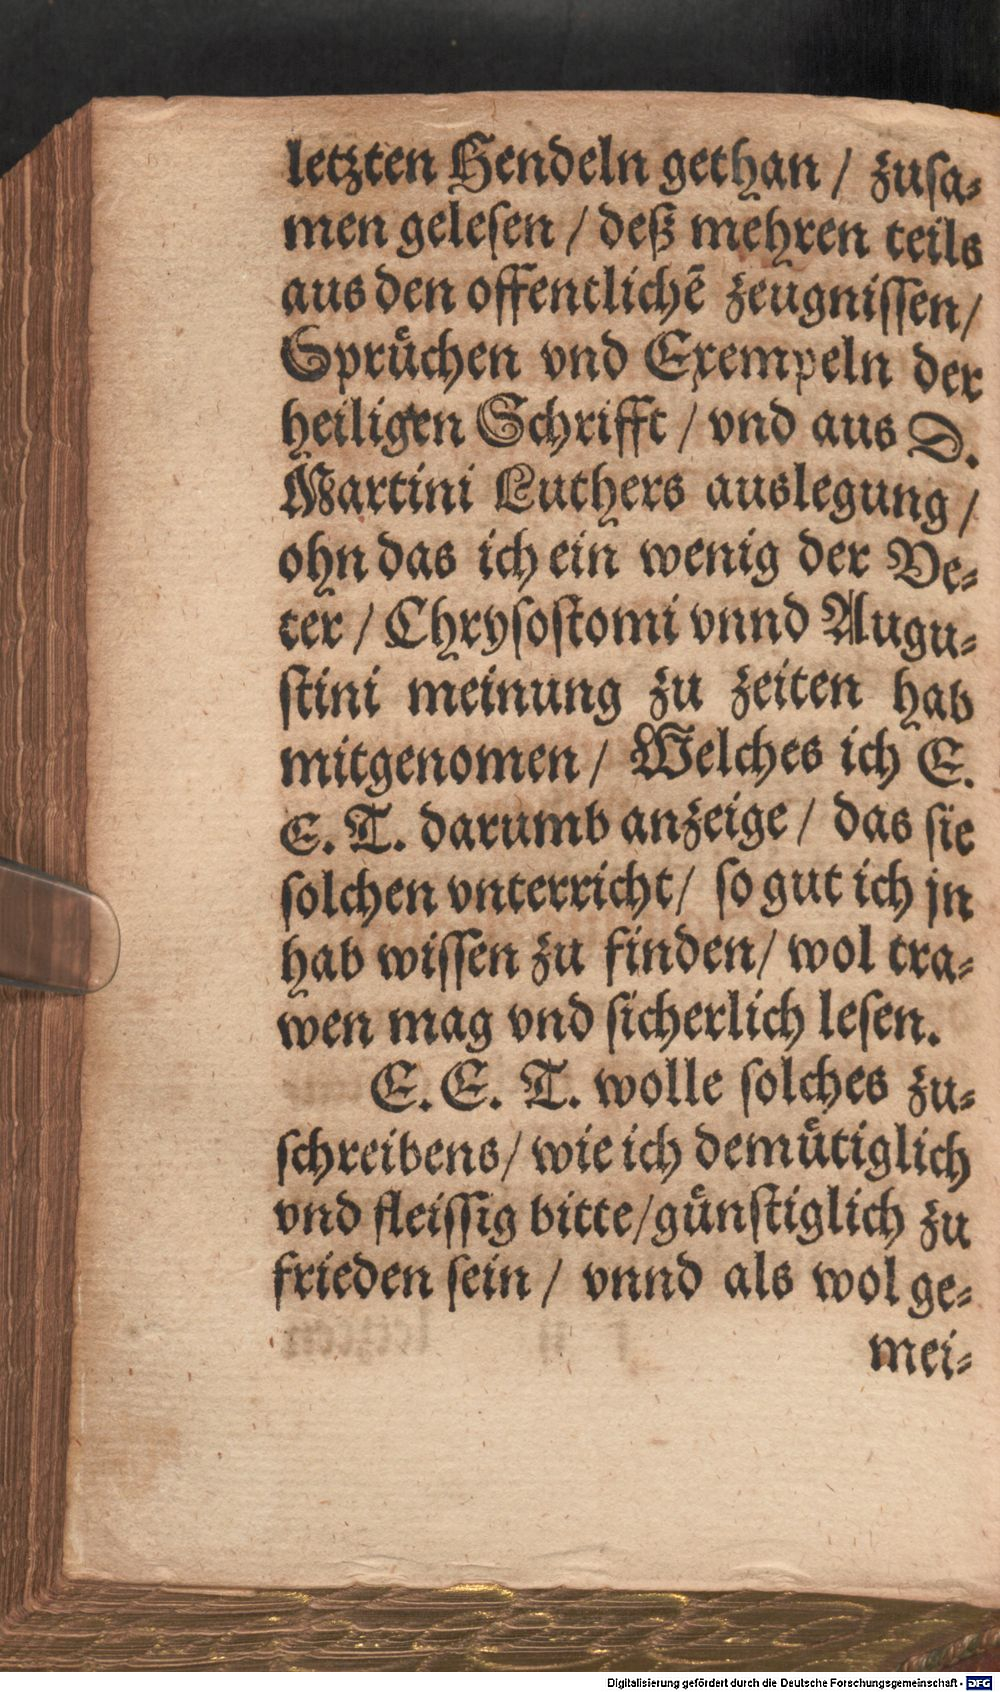 letzten Hendeln gethan / zusa⸗
men gelesen / deß mehren teils
aus den offentlichẽ zeugnissen /
Sprüchen vnd Exempeln der
heiligen Schrifft / vnd aus D.
Martini Luthers auslegung /
ohn das ich ein wenig der Ve⸗
ter / Chrysostomi vnnd Augu⸗
stini meinung zu zeiten hab
mitgenomen / Welches ich E.
E. T. darumb anzeige / das sie
solchen vnterricht / so gut ich jn
hab wissen zu finden / wol tra⸗
wen mag vnd sicherlich lesen.
E. E. T. wolle solches zu⸗
schreibens / wie ich demütiglich
vnd fleissig bitte / günstiglich zu
frieden sein / vnnd als wol ge⸗
mei⸗
Digitalisierung gefördert durch die Deutsche Forschungsgemeinschaft - DFG